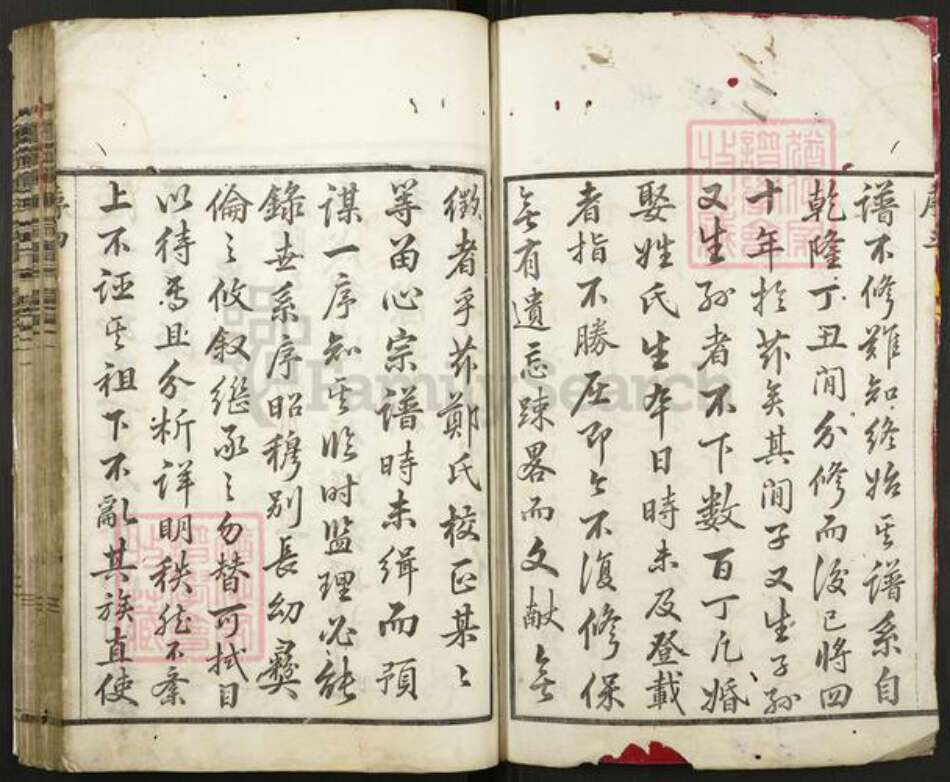 譜不修難知終始其譜系自
乾隆丁丑間分修而後已將四
十年於茲矣其間子又生子孫
又生孫者不下數百丁凡婚
娶姓氏生卒日時未及登載
者指不勝屈即今不復修保
無有遺忘踈畧而文献無
徵者乎茲鄭氏校正某〻
等留心宗譜時未緝而預
謀一序知其臨时监理必能
錄世系序昭穆别長幼彞
倫之攸叙繼承之勿替可拭目
以待焉且分析详明秩然不紊
上不诬其祖下不亂其族直使
FamilySearch